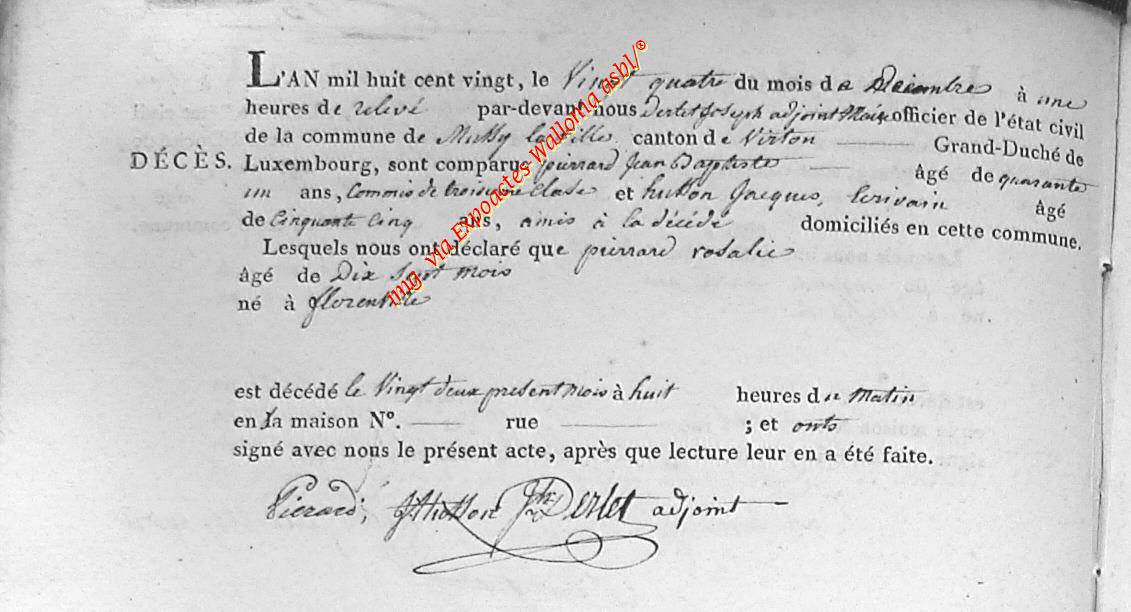 L'AN mil huit cent vingt, le Vingt quatre du mois de Decembre à une
heures de relevé par-devant nous Derlet Joseph adjoint Maire officier de l'état civil
de la commune de Mussy la Ville, canton de Virton Grand-Duché de
DÉCÈS. Luxembourg, sont comparus pierrard Jean Baptiste âgé de quarante
un ans, Commis de troisieme Classe et hutton Jacques, Ecrivain âgé
de Cinquante Cinq ans, amis à la décédé domiciliés en cette commune.
Lesquels nous ont déclaré que pierrard rosalie
âgé de Dix Sept mois
né à florenville
est décédé le Vingt deux present mois à huit heures du matin
en sa maison N°. rue ; et onts
signé avec nous le présent acte, après que lecture leur en a été faite.
Pierard, JHutton Jh Derlet adjoint
img. via Expoactes Wallonia asbl/®